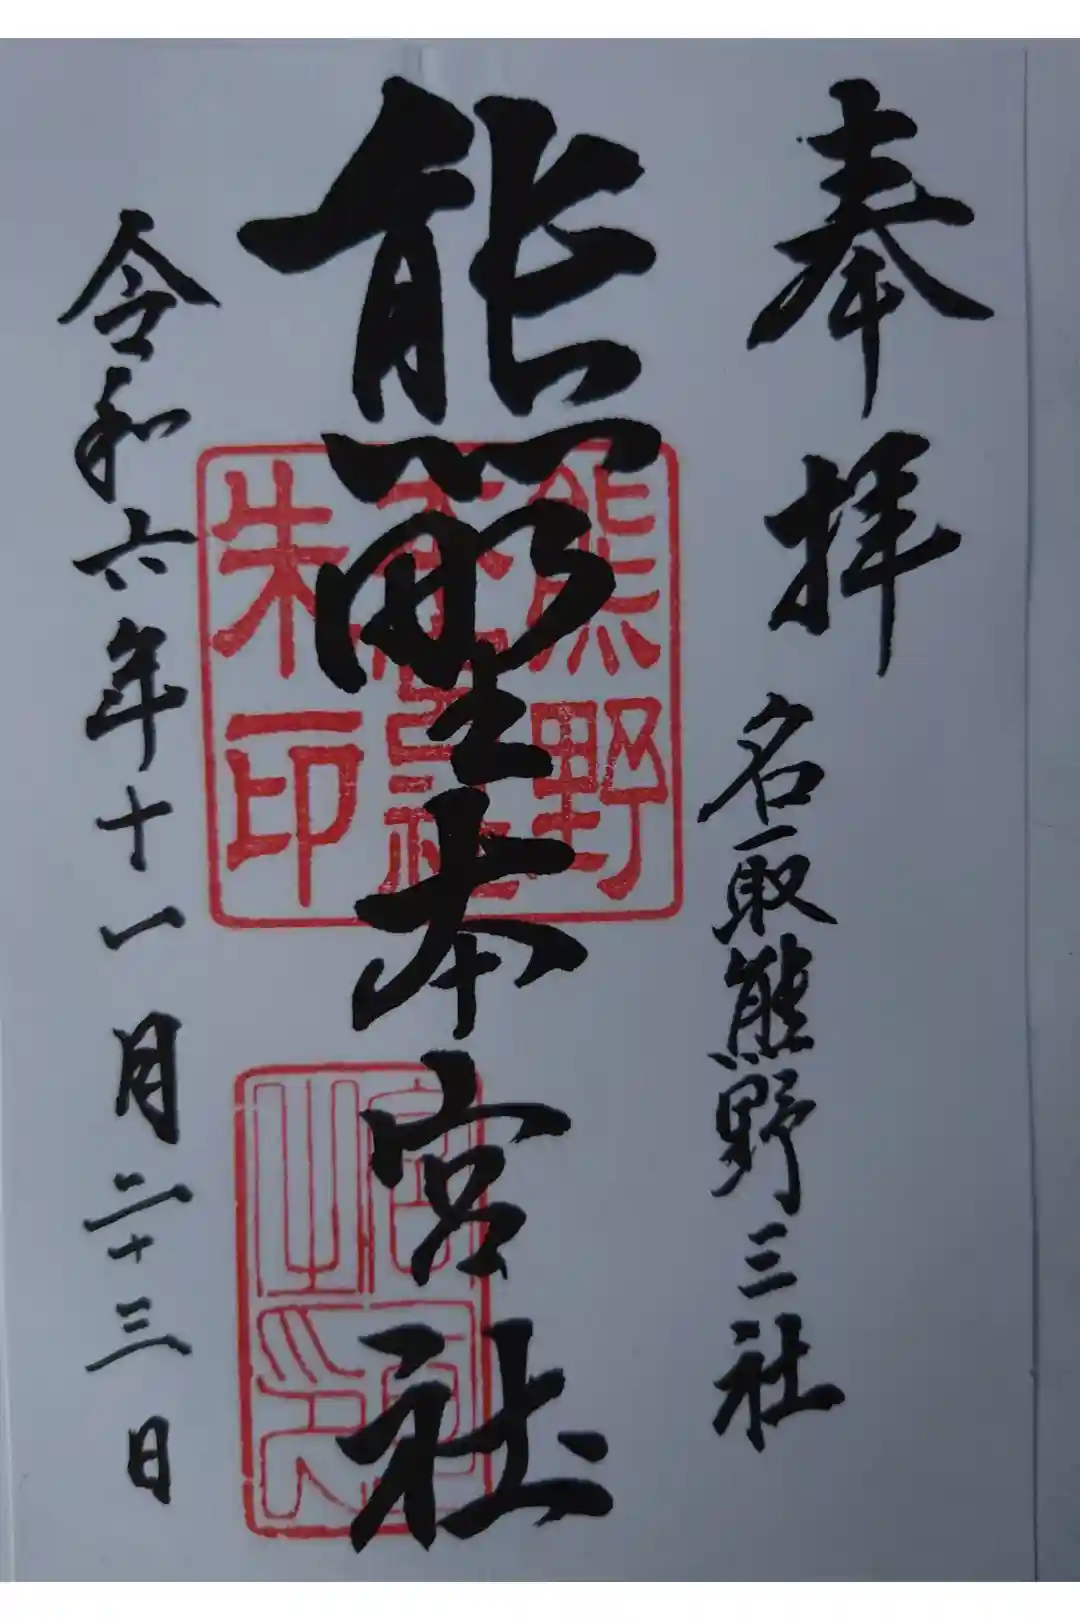 奉拝
名取熊野三社
熊野本宮社
令和六年十一月二十三日
熊野
本宮社
朱印
宮司之印